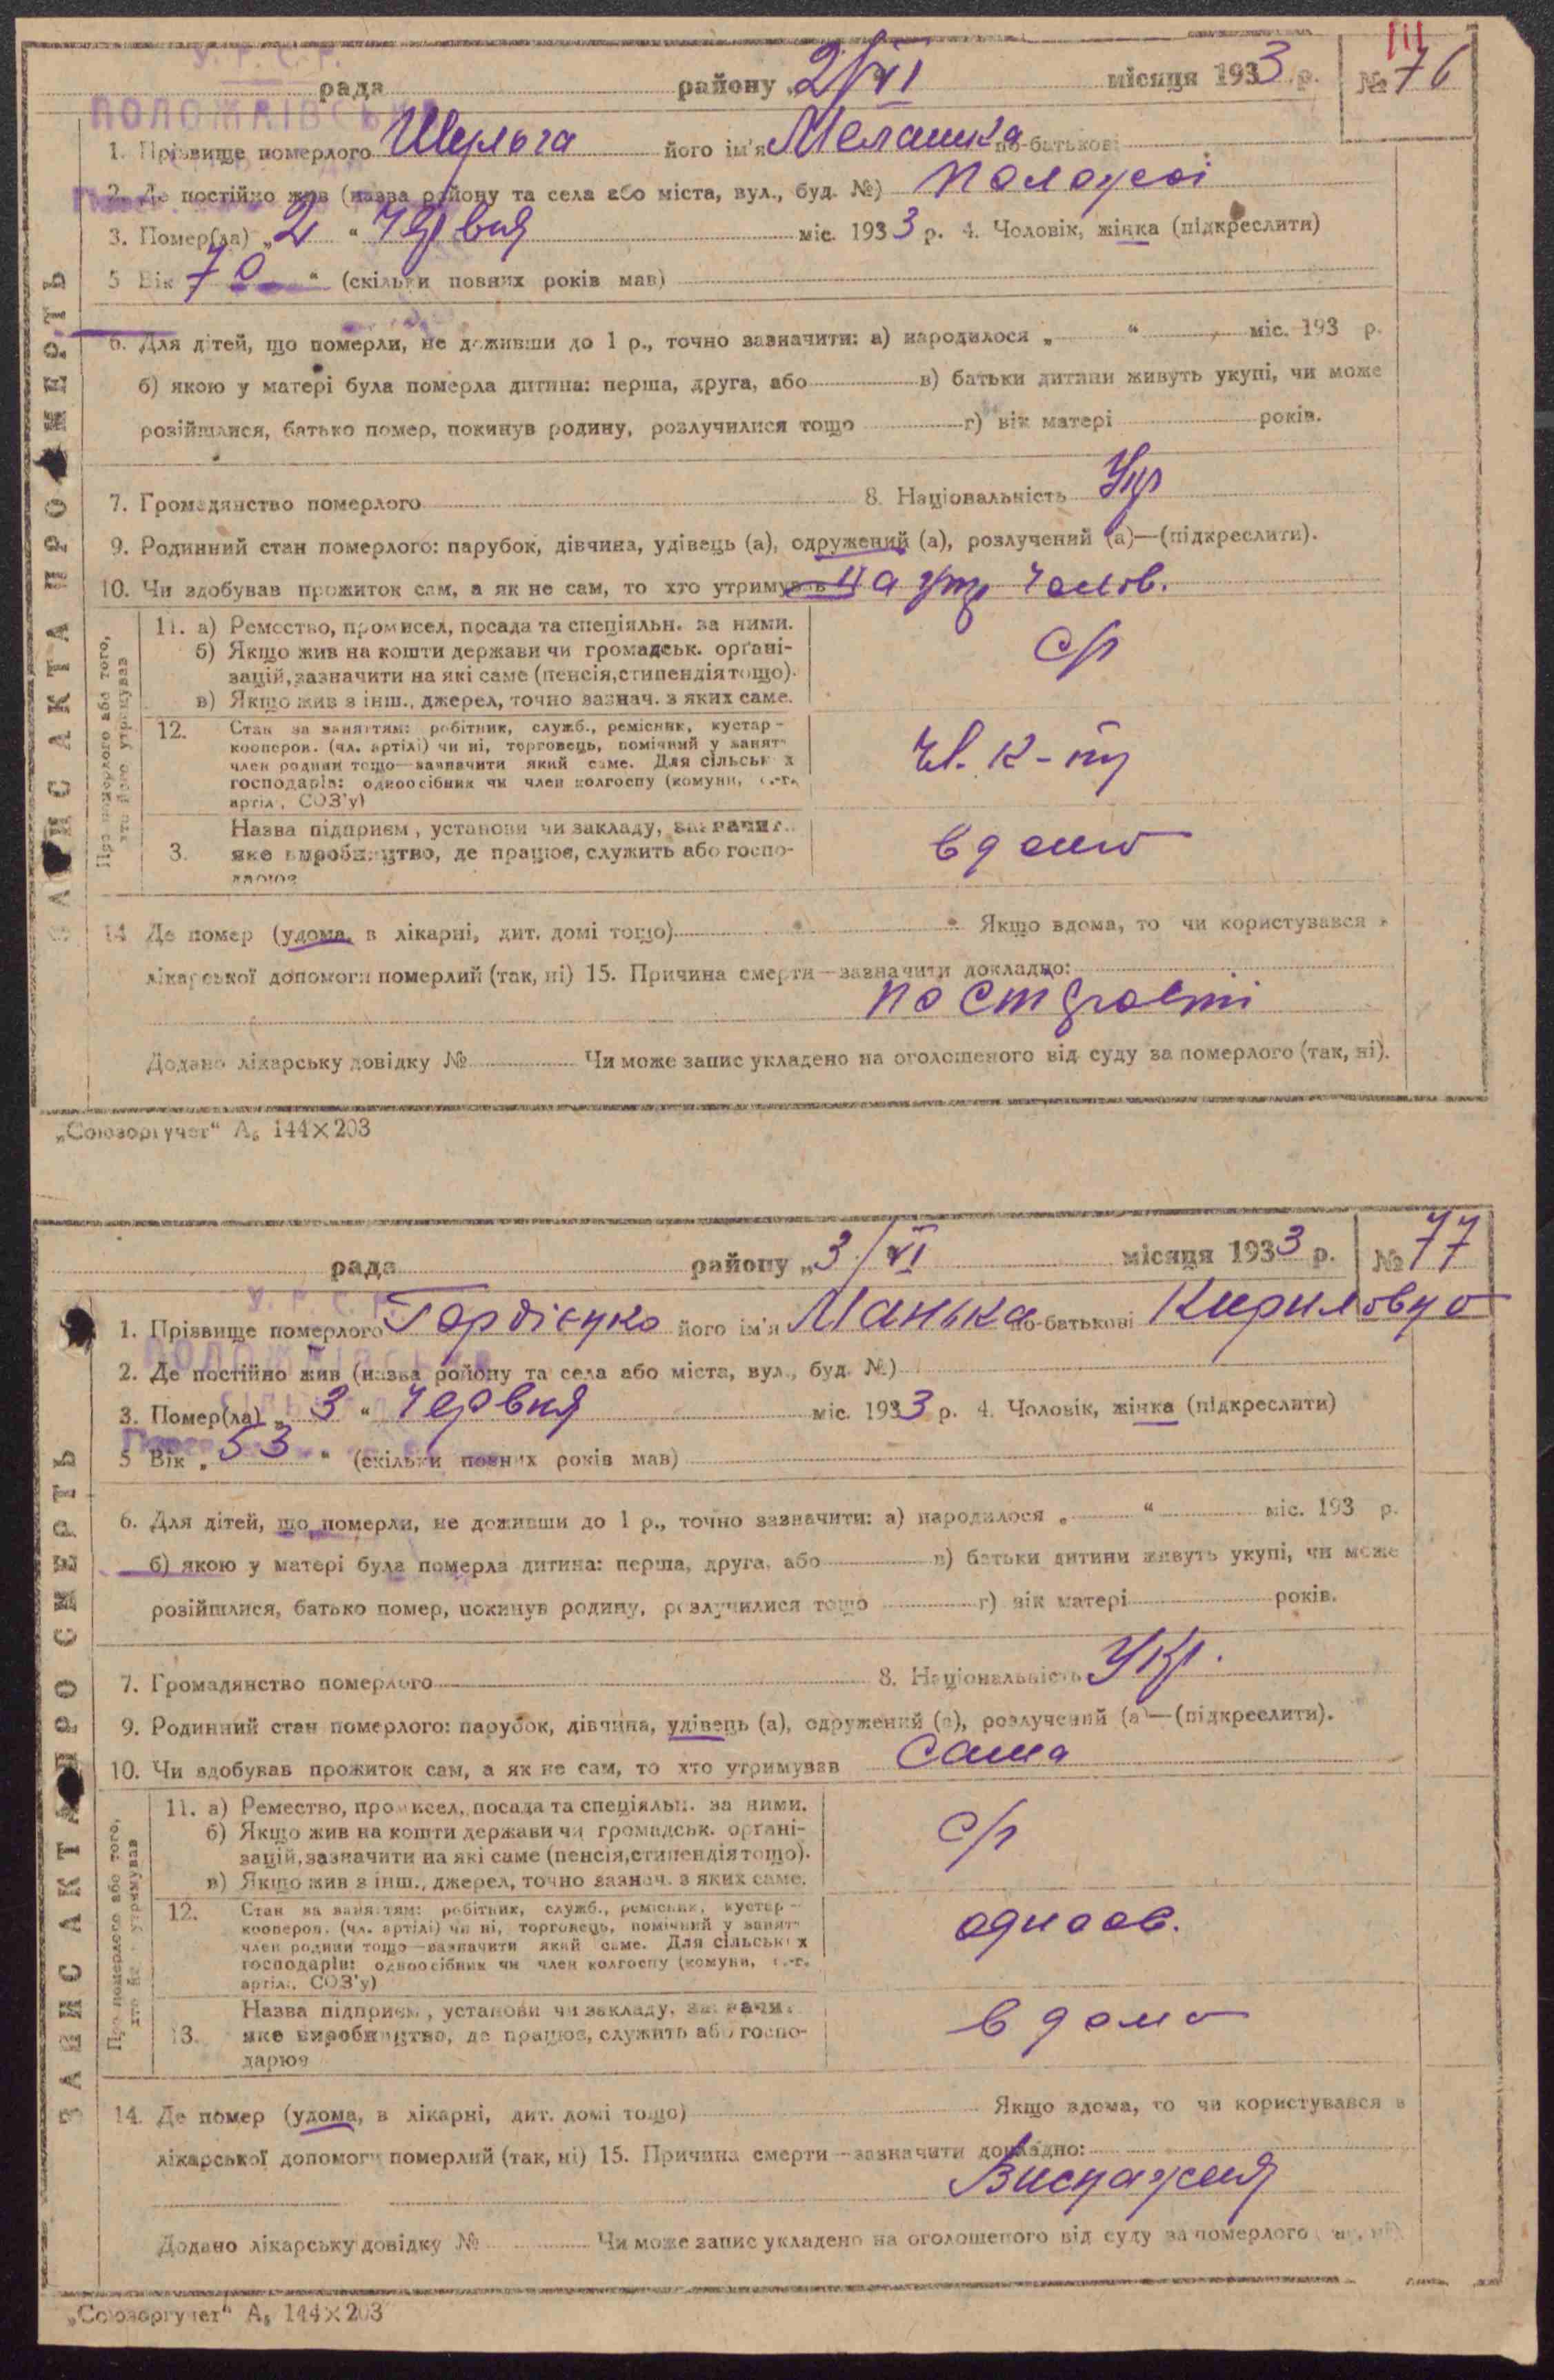 У. Р. С. Р.
рада району „2/VI місяця 1933 р. № 76
III
ПОЛОЖАЇВСЬКА
1. Прізвище померлого Шульга його ім'я Мелашка по-батькові
2. Де постійно жив (назва району та села або міста, вул., буд. №) Положаї
3. Помер(ла) „2“ Червня міс. 1933 р. 4. Чоловік, жінка (підкреслити)
5 Вік 70 “ (скільки повних років мав)
6. Для дітей, що померли, не доживши до 1 р., точно зазначити: а) народилося „ “ міс. 193 р.
б) якою у матері була померла дитина: перша, друга, або в) батьки дитини живуть укупі, чи може
розійшлися, батько помер, покинув родину, розлучилися тощо г) вік матері років.
7. Громадянство померлого 8. Національність Укр
9. Родинний стан померлого: парубок, дівчина, удівець (а), одружений (а), розлучений (а)—(підкреслити).
10. Чи здобував прожиток сам, а як не сам, то хто утримував на утр чолов.
11. а) Ремество, промисел, посада та спеціяльн. за ними.
б) Якщо жив на кошти держави чи громадськ. органі-
зацій, зазначити на які саме (пенсія, стипендія тощо).
в) Якщо жив з інш., джерел, точно зазнач. з яких саме.
с/г
12. Стан за заняттям: робітник, служб., ремісник, кустар-
кооперов. (чл. артілі) чи ні, торговець, помічний у занят-
член родини тощо—зазначити який саме. Для сільськ х
господарів: одноосібник чи член колгоспу (комуни, с.-г.
артіл., СОЗ'у)
чл. к-пу
Назва підприєм, установи чи закладу, зазначит.
3. яке виробництво, де працює, служить або госпо-
дарює
вдома
Про померлого або того, хто його утримував
ЗАПИС АКТА ПРО СМЕРТЬ
14 Де помер (удома, в лікарні, дит. домі тощо) Якщо вдома, то чи користувався з
лікарської допомоги померлий (так, ні) 15. Причина смерти—зазначити докладно:
по старості
Додано лікарську довідку № Чи може запис укладено на оголошеного від суду за померлого (так, ні).
„Союзоргучет“ А₅ 144×203
рада району „3/VI місяця 1933 р. № 77
У. Р. С. Р.
1. Прізвище померлого Гордієнко його ім'я Манька по-батькові Кириловна
ПОЛОЖАЇВСЬКА
2. Де постійно жив (назва району та села або міста, вул., буд. №)
3. Помер(ла) „3“ Червня міс. 1933 р. 4. Чоловік, жінка (підкреслити)
5 Вік „53“ (скільки повних років мав)
6. Для дітей, що померли, не доживши до 1 р., точно зазначити: а) народилося „ “ міс. 193 р.
б) якою у матері була померла дитина: перша, друга, або в) батьки дитини живуть укупі, чи може
розійшлися, батько помер, покинув родину, розлучилися тощо г) вік матері років.
7. Громадянство померлого 8. Національність Укр.
9. Родинний стан померлого: парубок, дівчина, удівець (а), одружений (а), розлучений (а —(підкреслити).
10. Чи здобував прожиток сам, а як не сам, то хто утримував сама
11. а) Ремество, промисел, посада та спеціяльн. за ними.
б) Якщо жив на кошти держави чи громадськ. органі-
зацій, зазначити на які саме (пенсія, стипендія тощо).
в) Якщо жив з інш., джерел, точно зазнач. з яких саме.
с/г
12. Стан за заняттям: робітник, служб., ремісник, кустар-
кооперов. (чл. артілі) чи ні, торговець, помічний у занят-
член родини тощо—зазначити який саме. Для сільськ х
господарів: одноосібник чи член колгоспу (комуни, с.-г.
артіл., СОЗ'у)
одноос.
Назва підприєм, установи чи закладу, зазначи
13. яке виробництво, де працює, служить або госпо-
дарює
вдома
Про померлого або того, хто його утримував
ЗАПИС АКТА ПРО СМЕРТЬ
14. Де помер (удома, в лікарні, дит. домі тощо) Якщо вдома, то чи користувався в
лікарської допомоги померлий (так, ні) 15. Причина смерти—зазначити докладно:
Виснаженя
Додано лікарську довідку № Чи може запис укладено на оголошеного від суду за померлого (так, ні).
„Союзоргучет“ А₅ 144×203